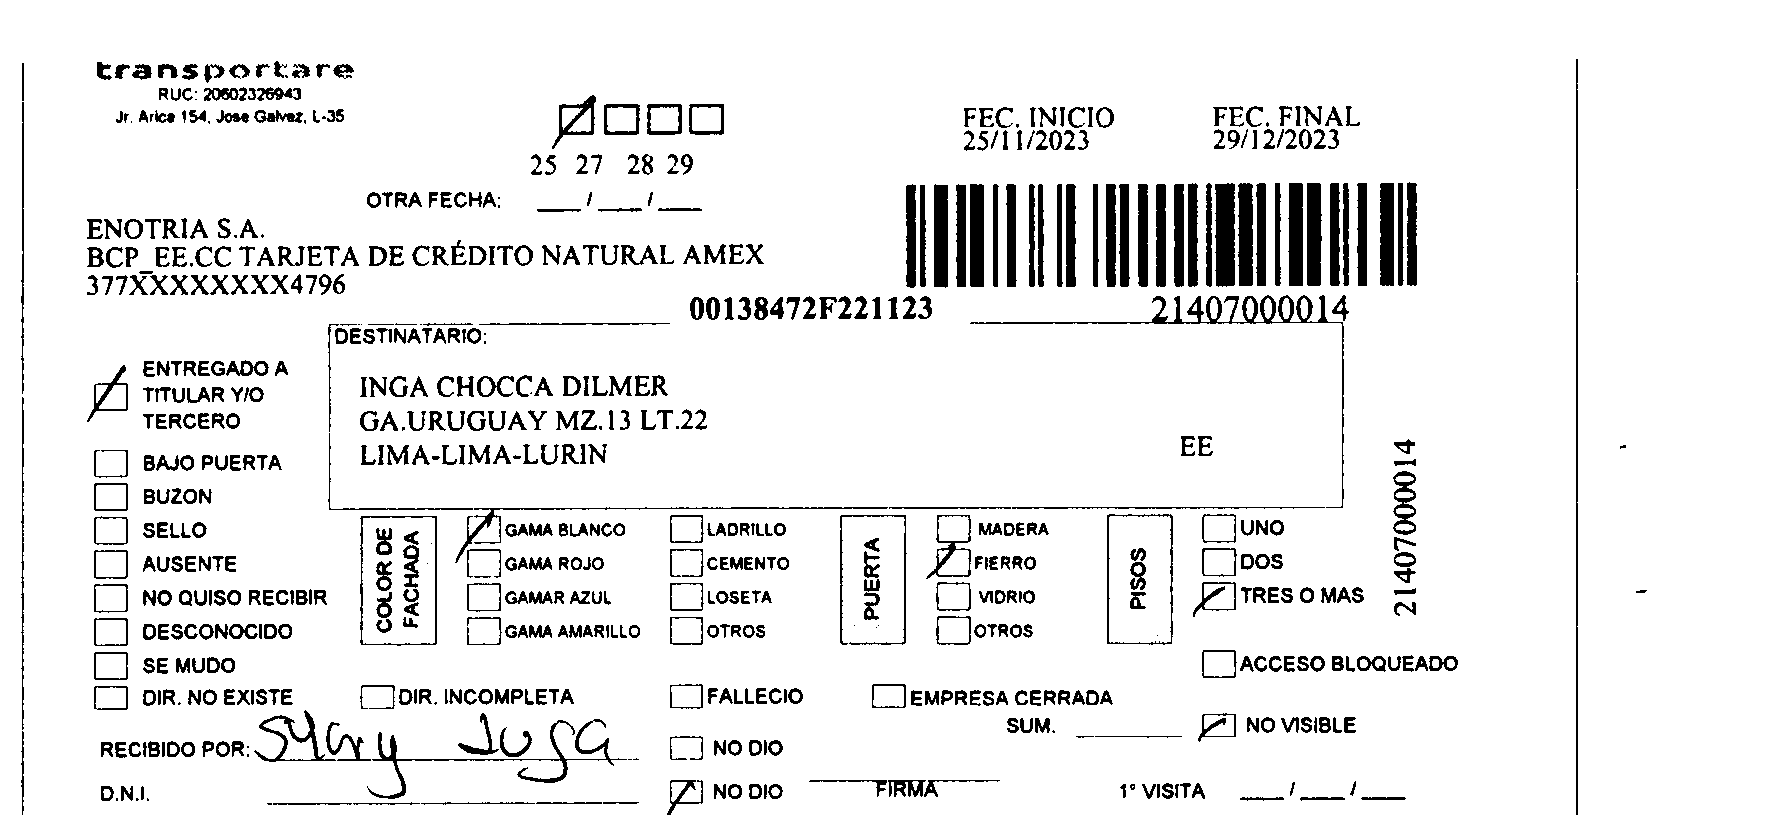 transportare
RUC: 20602326943
Jr. Arica 154, Jose Galvez, L-35
25 27 28 29
OTRA FECHA: ___/___/___
FEC. INICIO
25/11/2023
FEC. FINAL
29/12/2023
ENOTRIA S.A.
BCP_EE.CC TARJETA DE CRÉDITO NATURAL AMEX
377XXXXXXXXX4796
00138472F221123
21407000014
DESTINATARIO:
INGA CHOCCA DILMER
GA.URUGUAY MZ.13 LT.22
LIMA-LIMA-LURIN
EE
21407000014
ENTREGADO A
TITULAR Y/O
TERCERO
BAJO PUERTA
BUZON
SELLO
AUSENTE
NO QUISO RECIBIR
DESCONOCIDO
SE MUDO
DIR. NO EXISTE
COLOR DE
FACHADA
GAMA BLANCO
GAMA ROJO
GAMAR AZUL
GAMA AMARILLO
LADRILLO
CEMENTO
LOSETA
OTROS
PUERTA
MADERA
FIERRO
VIDRIO
OTROS
PISOS
UNO
DOS
TRES O MAS
ACCESO BLOQUEADO
DIR. INCOMPLETA
FALLECIO
EMPRESA CERRADA
SUM. ________
NO VISIBLE
RECIBIDO POR:
NO DIO
D.N.I.
NO DIO
FIRMA
1° VISITA ___/___/___